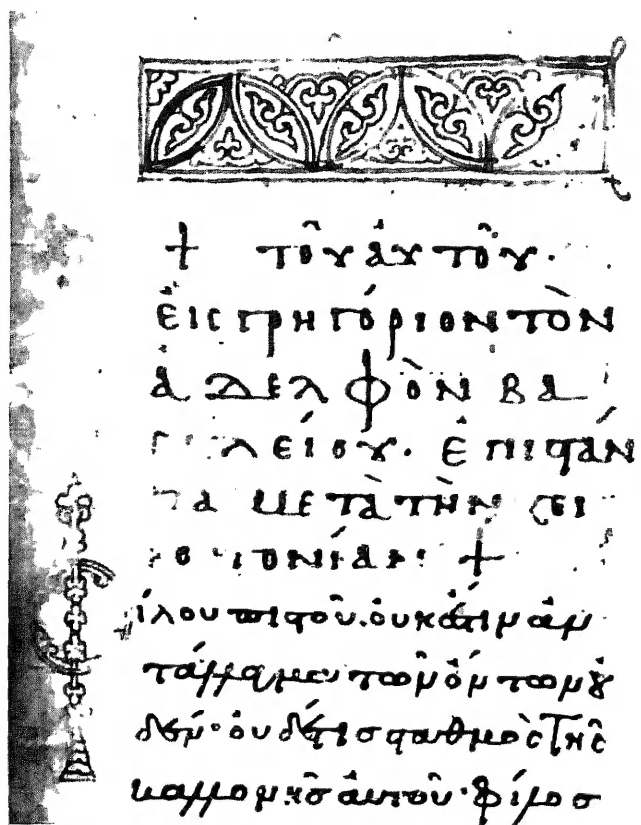 + τοῦ ἀυτοῦ.
ἐις γρηγόριον τὸν
ἀδελφὸν βα
σιλείου. ἐπιστάν
τα μετὰ τὴν χει
ροτονίαν: +
ίλου πιστοῦ. ὀυκ ἔστιν ἀν
τάλλαγμα τῶν ὄντων οὐ
δέν· ὀυδέ τις σταθμὸς τῆς
καλλονῆς ἀυτοῦ· φίλος